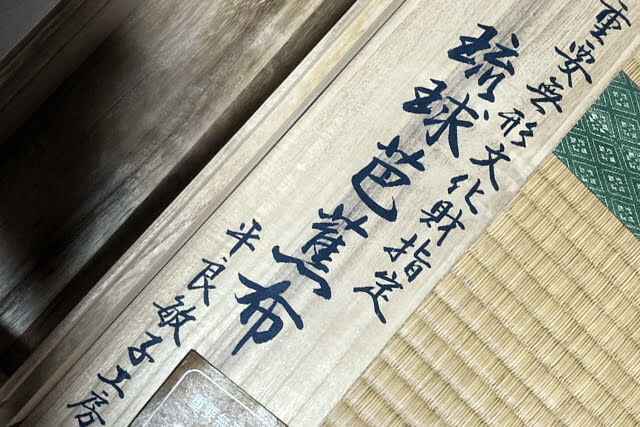 重要無形文化財指定
琉球芭蕉布
平良敏子工房